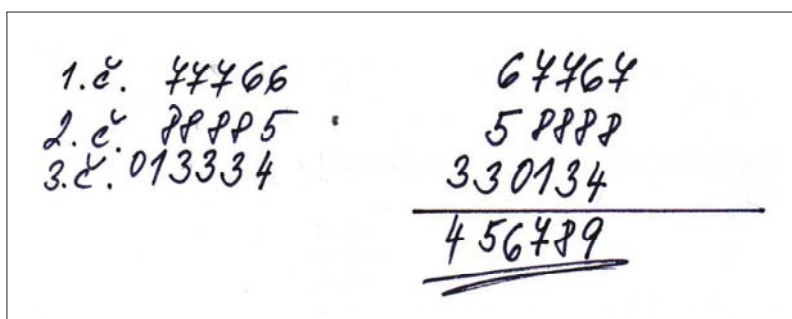 1.č. 77766
2.č. 88885
3.č. 013334
67767
58888
330134
456789